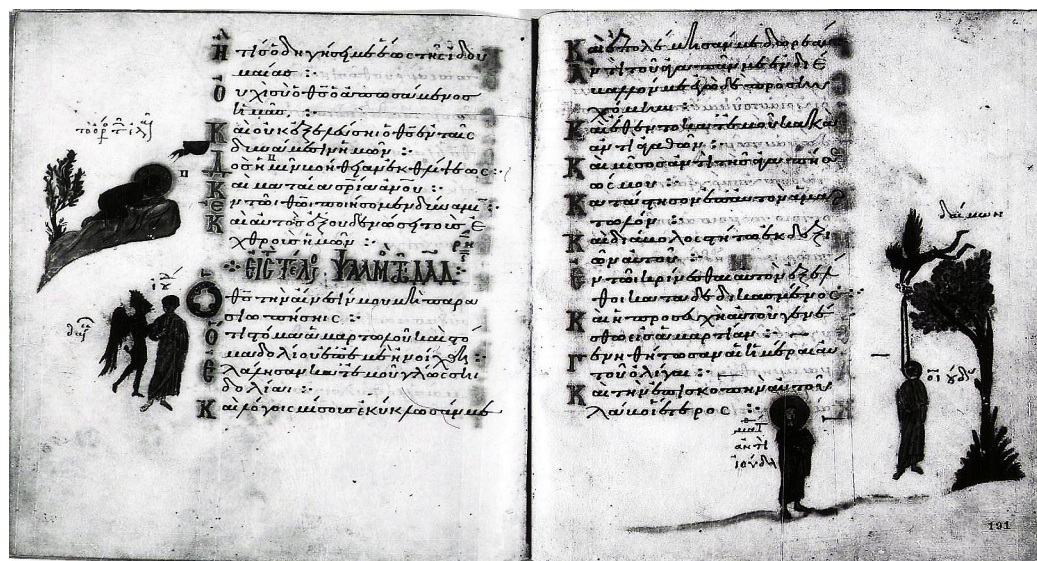 Ἢ τίς ὁδηγήσει με ἕως τῆς ἰδου
μαίας :·
Ὀυχὶ σὺ ὁ θς ὁ ἀπωσάμενος
ἡμᾶς
Καὶ οὐκ ἐξελεύσῃ ὁ θς ἐν ταῖς
δυνάμεσιν ἡμῶν :·
Δὸς ἡμῖν βοήθειαν ἐκ θλίψεως :·
Καὶ ματαία σρία ἀνου :·
Ἐν τῶ θω ποιήσωμεν δύναμιν
Καὶ αὐτὸς ἐξουδενώσει τοὺς ἐ
χθροὺς ἡμῶν :·
ΡΗ
ΕΙΣ ΤΕΛΟΣ ΨΑΛΜΟΣ ΔΑΔ
Ὁ θς τὴν αἴνεσίν μου μὴ παρα
σιωπήσῃς :·
Ὅτι στόμα ἁμαρτωλοῦ καὶ στό
μα δολίου ἐπ' ἐμὲ ἠνοίχθη :·
Ἐλάλησαν κατ' ἐμοῦ γλώσσῃ
δολίᾳ :·
Καὶ λόγοις μίσους ἐκύκλωσάν με
Καὶ ἐπολέμησάν με δωρεάν
Ἀντὶ τοῦ ἀγαπᾶν με ἐνδιέ
βαλλόν με ἐγὼ δὲ προσηυ
χόμην :·
Καὶ ἔθεντο κατ' ἐμοῦ κακὰ
ἀντὶ ἀγαθῶν :·
Καὶ μῖσος ἀντὶ τῆς ἀγαπήσε
ώς μου :·
Κατάστησον ἐπ' αὐτὸν ἁμαρ
τωλόν :·
Καὶ διάβολος στήτω ἐκ δεξι
ῶν αὐτοῦ :·
Ἐν τῶ κρίνεσθαι αὐτὸν ἐξέλ
θοι καταδεδικασμένος :·
Καὶ ἡ προσευχὴ αὐτοῦ γενέ
σθω εἰς ἁμαρτίαν :·
Γενηθήτωσαν αἱ ἡμέραι αὐ
τοῦ ὀλίγαι :·
Καὶ τὴν ἐπισκοπὴν αὐτοῦ
λάβοι ἕτερος :·
δαίμων
ὁ ἰούδας
ἀντὶ
ἰούδα
191